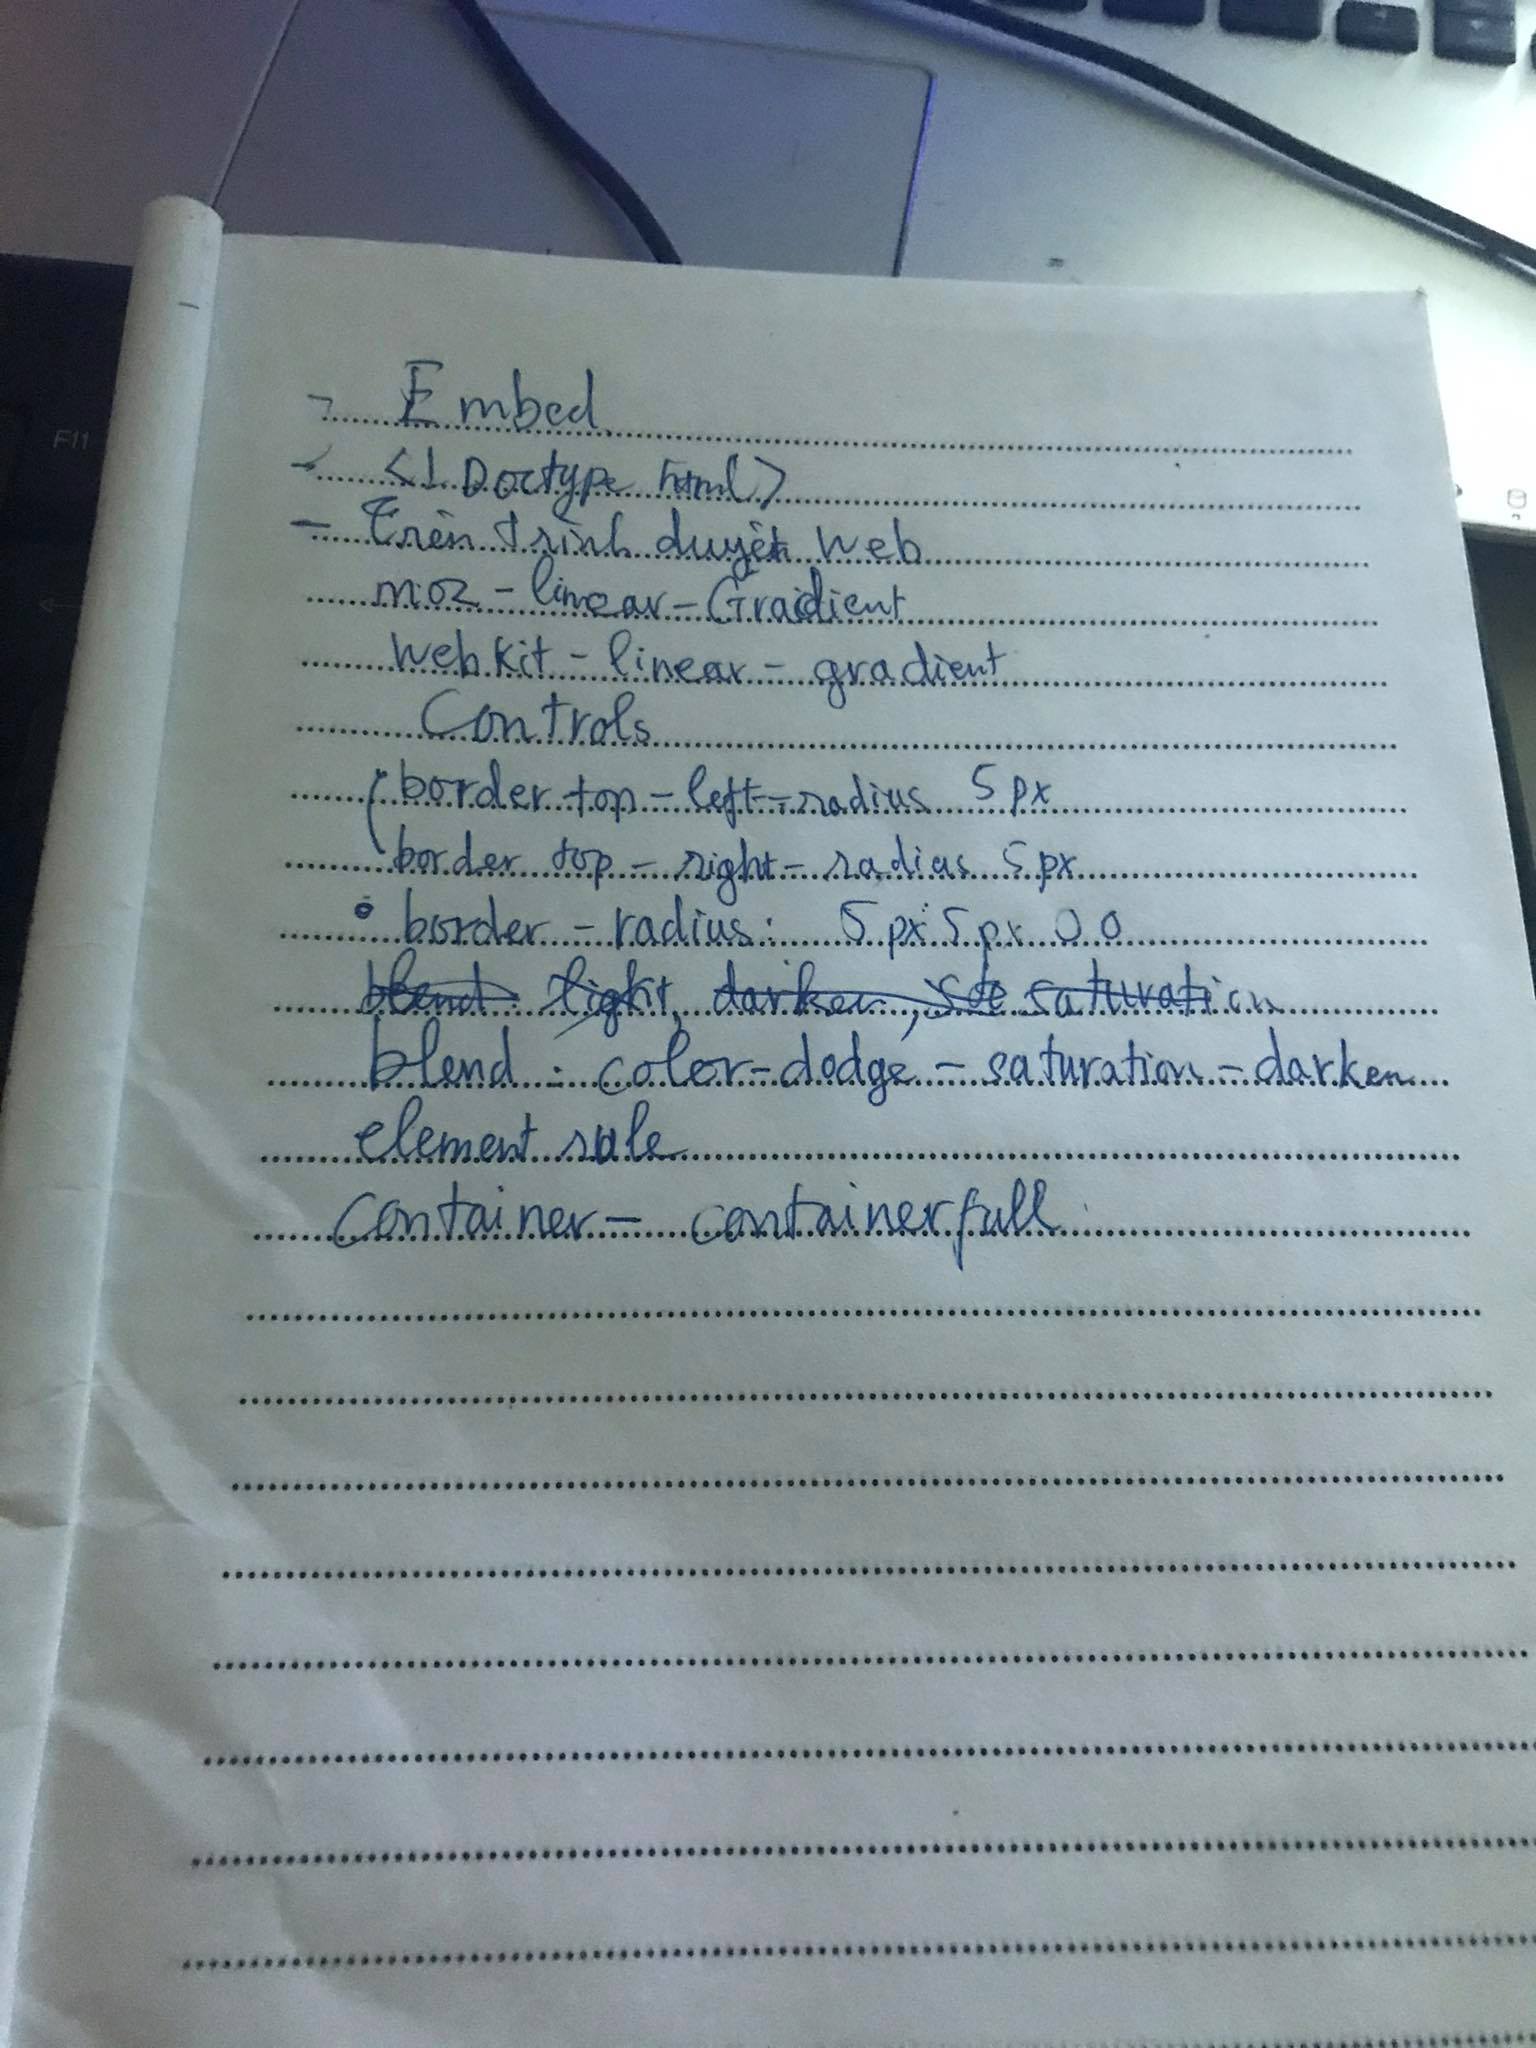 - Embed
- <! Doctype html>
- Trên trình duyệt web
moz - linear - Gradient
webkit - linear - gradient
Controls
border top - left - radius 5 px
border top - right - radius 5 px
• border - radius: 5 px 5 px 0 0
blend: light, darken, saturation
blend : color - dodge - saturation - darken
element rule
container - containerfull
F11